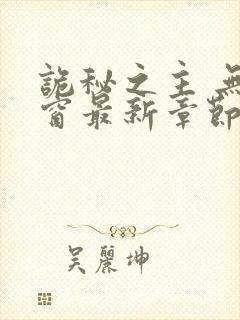 詭秘之主 無
窗最新章節
吳麗坤